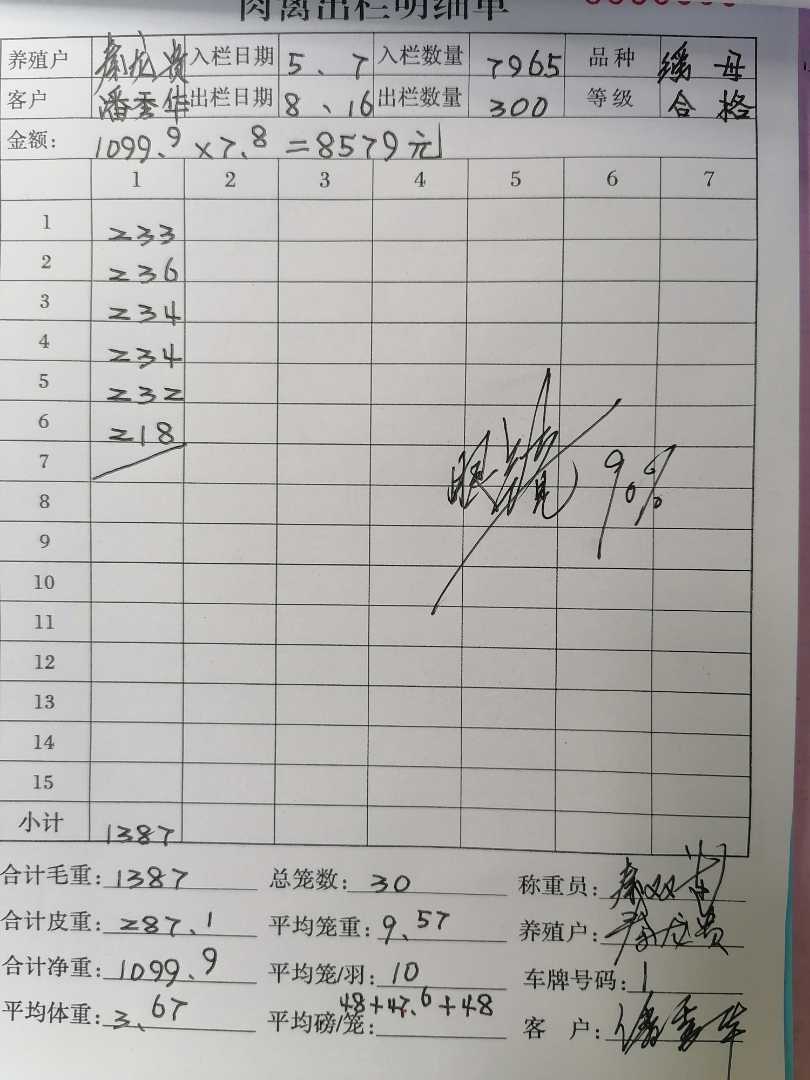 肉禽出栏明细单
养殖户 秦龙贵 入栏日期 5、7 入栏数量 7965 品种 瑶母
客户 潘秀华 出栏日期 8、16 出栏数量 300 等级 合格
金额: 1099.9×7.8=8579元
1 2 3 4 5 6 7
1 233
2 236
3 234
4 234
5 232
6 218
7
8 90%
9
10
11
12
13
14
15
小计 1387
合计毛重: 1387 总笼数: 30 称重员:
合计皮重: 287.1 平均笼重: 9.57 养殖户: 秦龙贵
合计净重: 1099.9 平均笼/羽: 10 车牌号码: 1
平均体重: 3.67 平均磅/笼: 48+47.6+48 客 户: 潘秀华